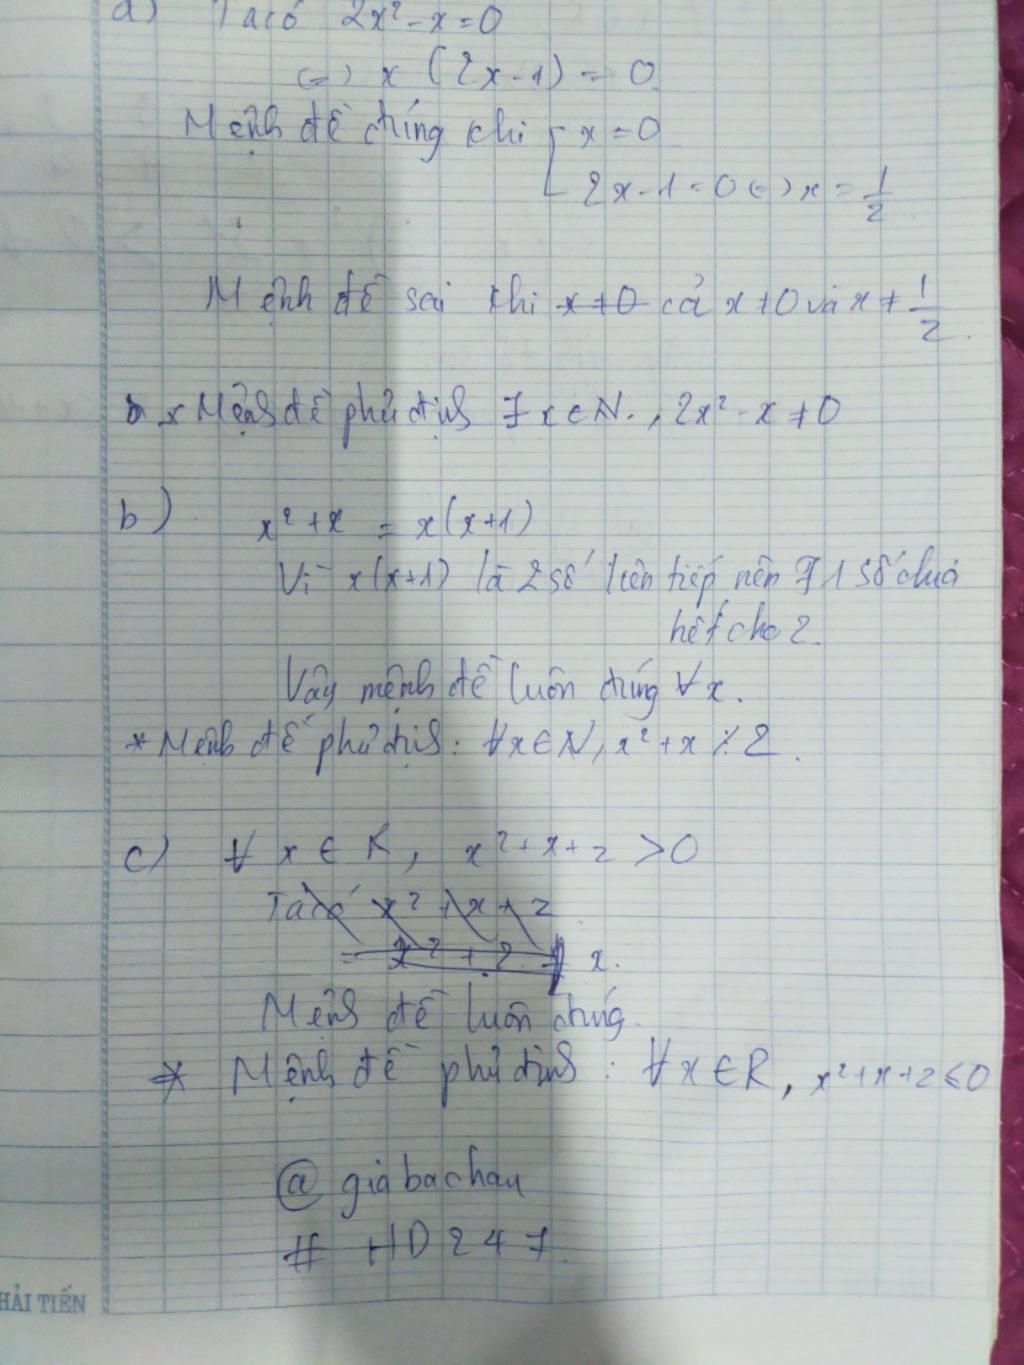 a) Ta có 2x² - x = 0
(=) x (2x-1) = 0
Mệnh đề đúng khi [ x = 0
2x-1 = 0 (=) x = 1/2
Mệnh đề sai khi x ≠ 0 cả x ≠ 0 và x ≠ 1/2.
* Mệnh đề phủ định ∃ x ∈ N, 2x² - x ≠ 0
b) x² + x = x(x+1)
Vì x(x+1) là 2 số liên tiếp nên ∃ 1 số chia
hết cho 2.
Vậy mệnh đề luôn đúng ∀ x.
* Mệnh đề phủ định: ∀x ∈ N, x² + x ⋮̸ 2.
c) ∀ x ∈ R, x² + x + 2 > 0
Ta có x² + x + 2
= x² + 2 + x.
Mệnh đề luôn đúng.
* Mệnh đề phủ định: ∀x ∈ R, x² + x + 2 ≤ 0
@ giabachau
# HD247.
HẢI TIẾN